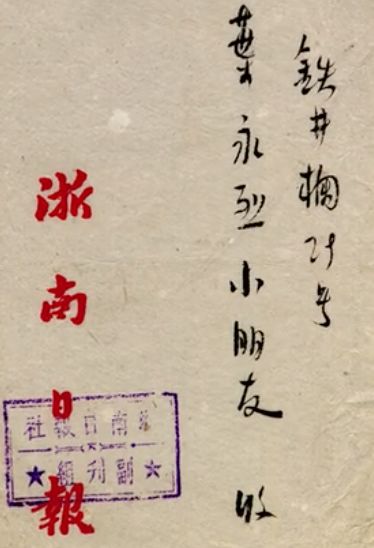 鉄井欄21号
葉永烈小朋友 收
浙南日報
浙南日報社
★副刋組★